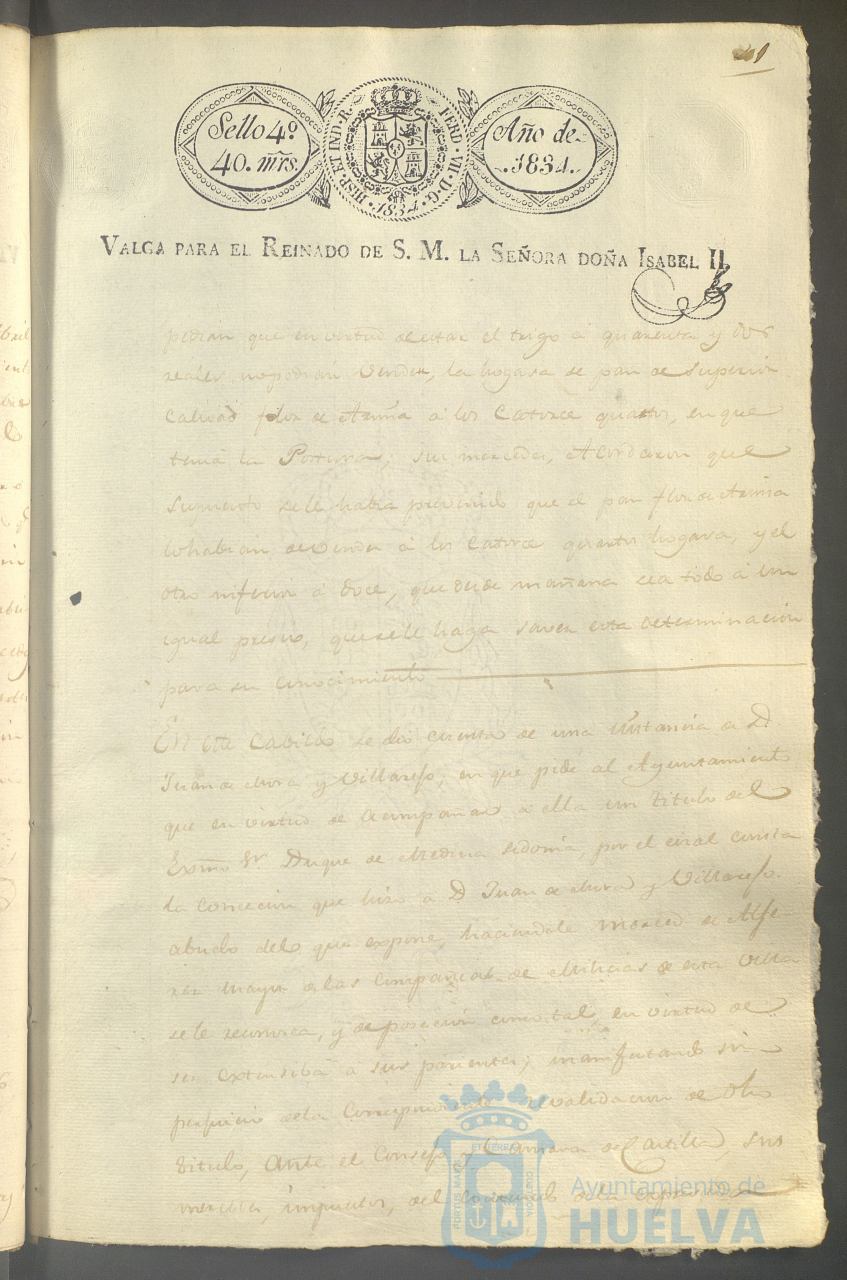 Sello 4º
40. mrs.
HISP. ET IND. R. FERD. VII. D. G.
1834
Año de
1834.
VALGA PARA EL REINADO DE S. M. LA SEÑORA DOÑA ISABEL II.
pedian que en virtud de estar el trigo á quarenta y dos
reales no podian vender, la hogasa de pan de superior
Calidad flor de Arina á los Catorce quartos, en que
tenia la Postura; sus mercedes, Acordaron que
supuesto se le habia prevenido que el pan flor de Arina
lo habian de vender á los Catorce quartos hogasa, y el
otro inferior á doce, que desde mañana sea todo á un
igual presio, que se le haga saver esta determinacion
para su conocimiento
En este Cavildo se dio cuenta de una instancia de D.
Juan de Mora y Villarejo, en que pide al Ayuntamiento
que en virtud de acompañar á ella un titulo del
Exsmo Sr Duque de Medina Sidonia, por el cual consta
la concecion que hizo á D Juan de Mora y Villarejo
abuelo del que expone, haciendole merced de Alfe
rez mayor de las Compañias de Milicias de esta Villa
se le reconosca, y de posecion como tal, en virtud de
ser extensiba á sus parientes; manifestando sin
perjuicio de la Correspondiente revalidacion de dho
titulo, Ante el Consejo y Camara de Castilla, sus
mercedes, impuestos, del contenido de la expresada
PORTUS MARIS ET TERRAE CUSTODIA
Ayuntamiento de
HUELVA